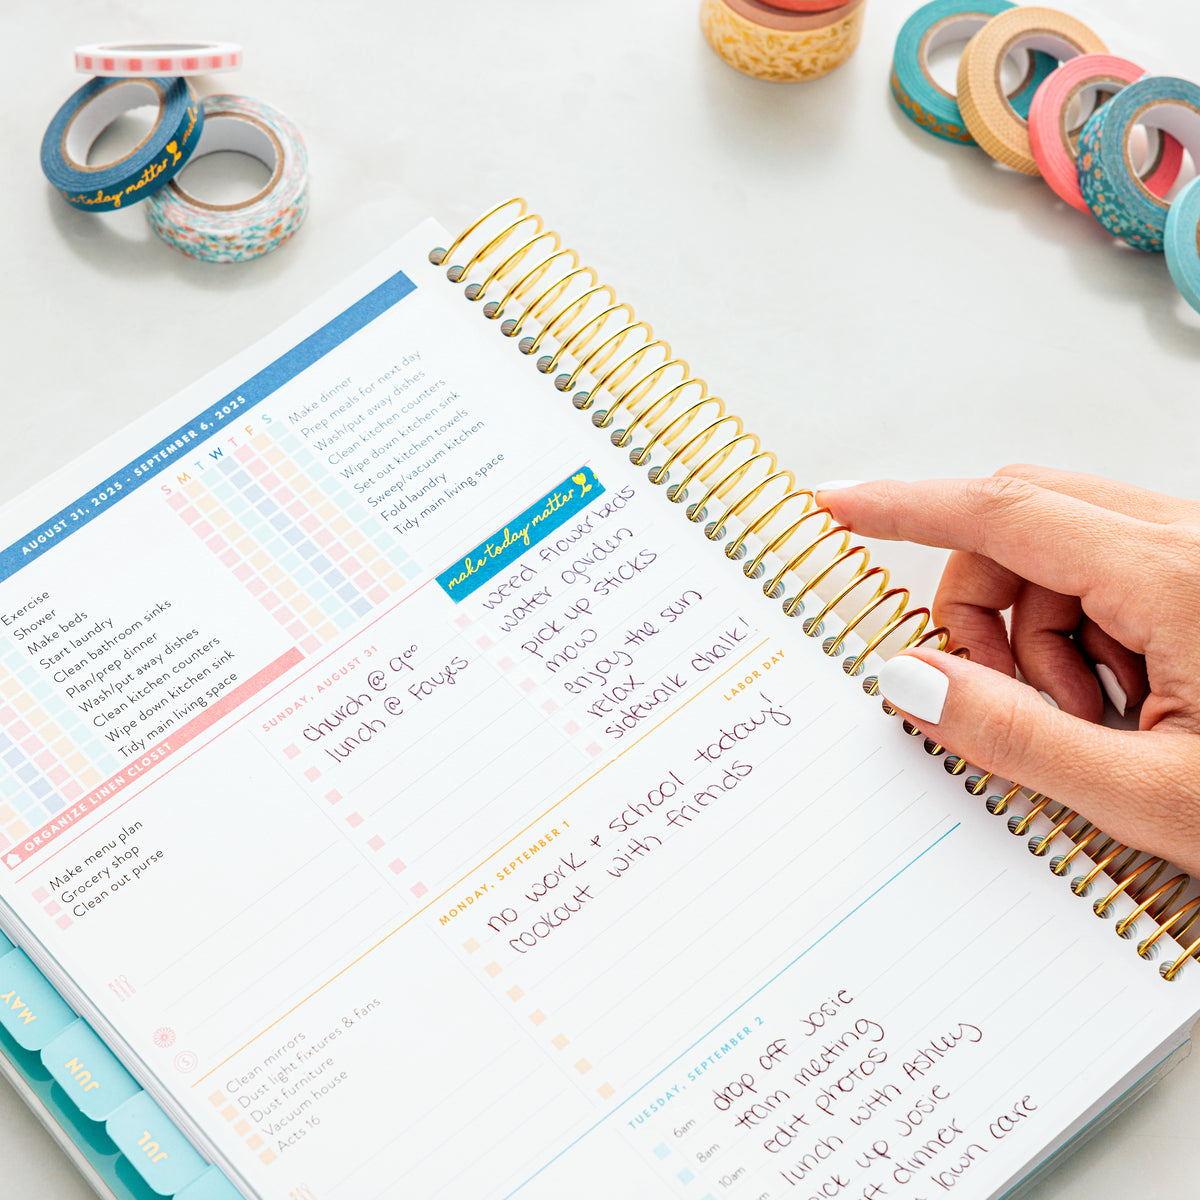 make today matter
today matter
make
AUGUST 31, 2025 - SEPTEMBER 6, 2025
S M T W T F S
Exercise
Shower
Make beds
Start laundry
Clean bathroom sinks
Plan/prep dinner
Wash/put away dishes
Clean kitchen counters
Wipe down kitchen sink
Tidy main living space
Make dinner
Prep meals for next day
Wash/put away dishes
Clean kitchen counters
Wipe down kitchen sink
Set out kitchen towels
Sweep/vacuum kitchen
Fold laundry
Tidy main living space
ORGANIZE LINEN CLOSET
Make menu plan
Grocery shop
Clean out purse
SUNDAY, AUGUST 31
church @ 900
lunch @ Fayes
weed flowerbeds
water garden
pick up sticks
mow
enjoy the sun
relax
sidewalk chalk!
LABOR DAY
MONDAY, SEPTEMBER 1
no work + school today!
cookout with friends
Clean mirrors
Dust light fixtures & fans
Dust furniture
Vacuum house
Acts 16
TUESDAY, SEPTEMBER 2
6am
drop off Josie
team meeting
8am
edit photos
10am
lunch with Ashley
pick up Josie
dinner
lawn care
MAY
JUN
JUL